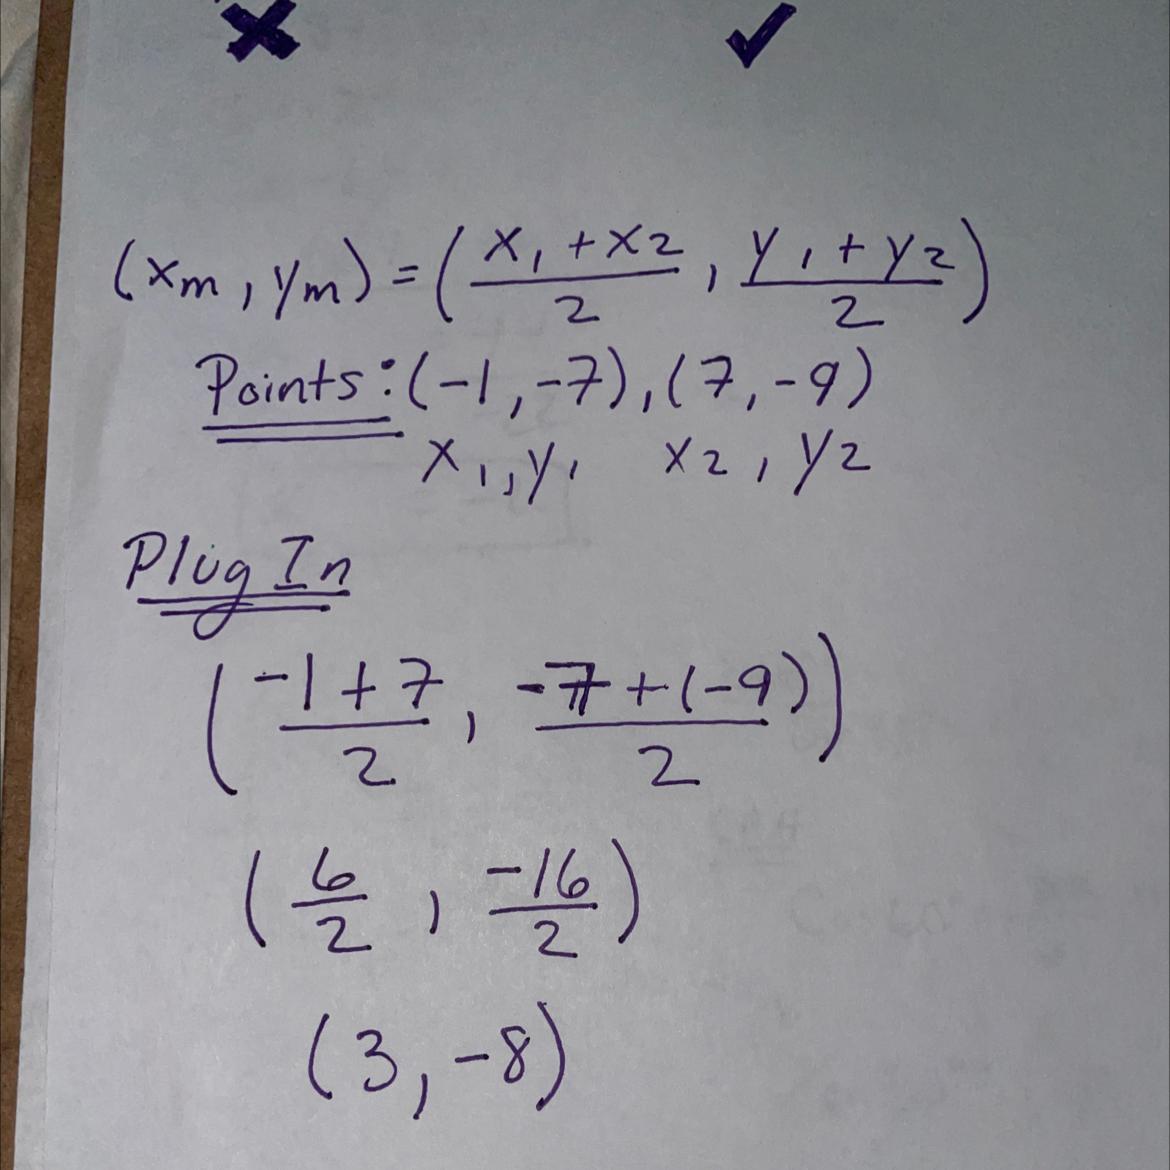 ✖ ✔
(xm, ym) = ((x1 + x2)/2, (y1 + y2)/2)
Points: (-1, -7), (7, -9)
x1, y1 x2, y2
Plug In
((-1 + 7)/2, (-7 + (-9))/2)
(6/2, -16/2)
(3, -8)